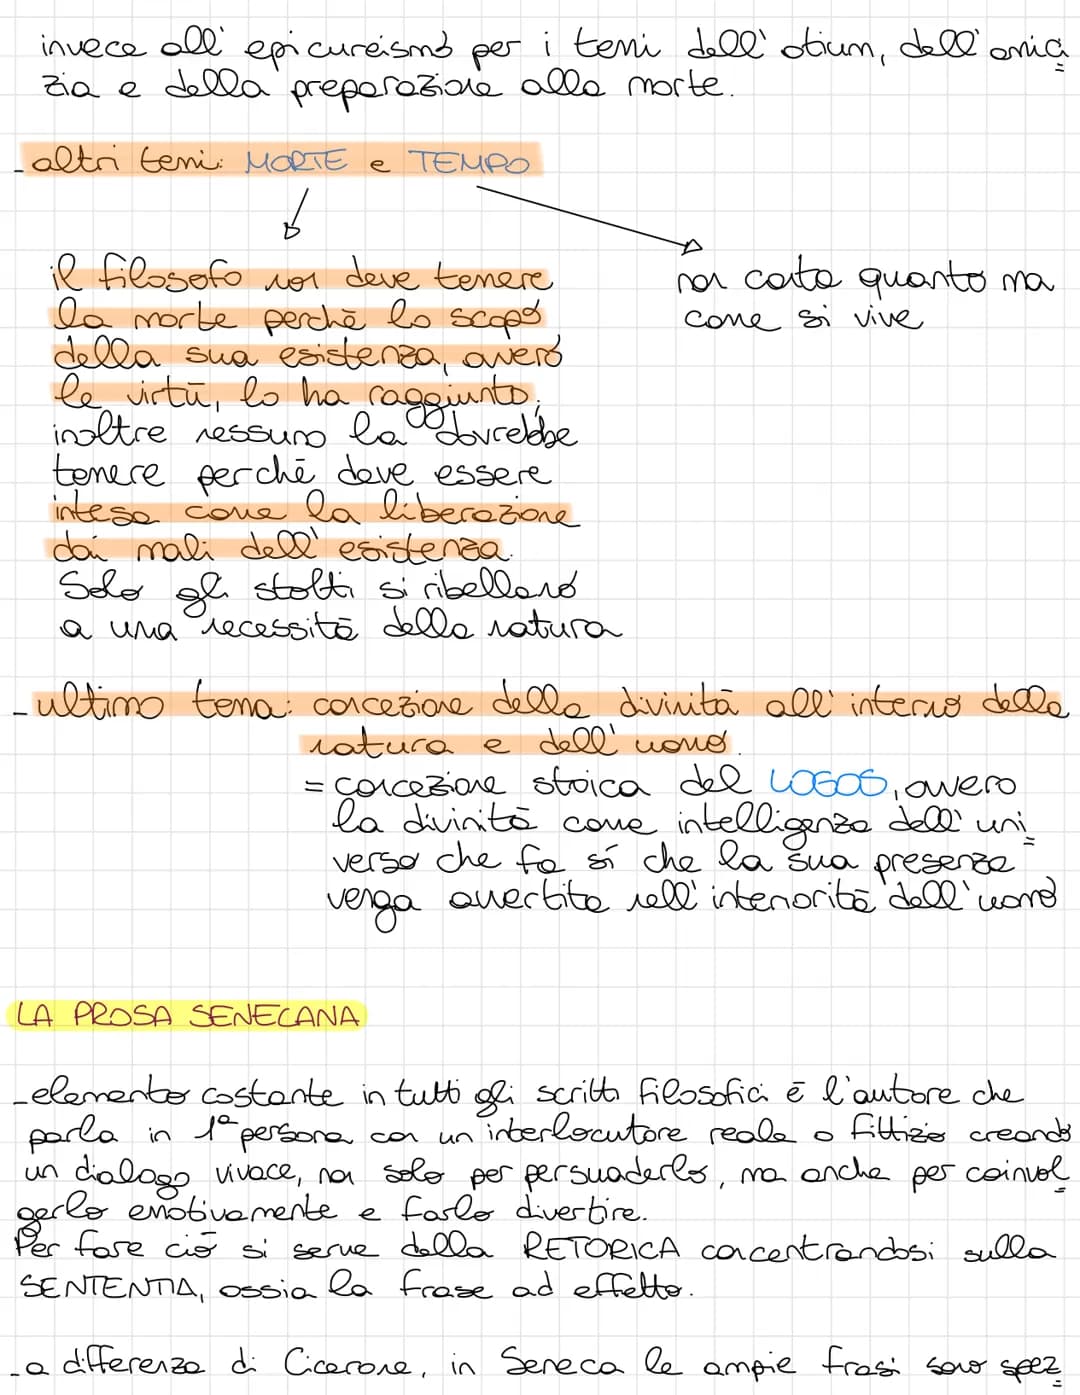 invece all' epicureismo per i temi dell' otium, dell'amici
zia e della preparazione alla morte.
- altri temi: MORTE e TEMPO
il filosofo non deve temere
la morte perchè lo scopo
della sua esistenza, ovvero
le virtù, lo ha raggiunto;
inoltre nessuno la dovrebbe
temere perchè deve essere
intesa come la liberazione
dai mali dell' esistenza.
Solo gli stolti si ribellano
a una necessità della natura
non conta quanto ma
come si vive
- ultimo tema: concezione della divinità all' interno della
natura e dell' uomo.
= concezione stoica del LOGOS, ovvero
la divinità come intelligenza dell' uni
verso che fa sì che la sua presenza
venga avvertita nell' interiorità dell'uomo
LA PROSA SENECANA
- elemento costante in tutti gli scritti filosofici è l'autore che
parla in 1ª persona con un interlocutore reale o fittizio creando
un dialogo vivace, non solo per persuaderlo, ma anche per coinvol
gerlo emotivamente e farlo divertire.
Per fare ciò si serve della RETORICA concentrandosi sulla
SENTENTIA, ossia la frase ad effetto.
- a differenza di Cicerone, in Seneca le ampie frasi sono spez